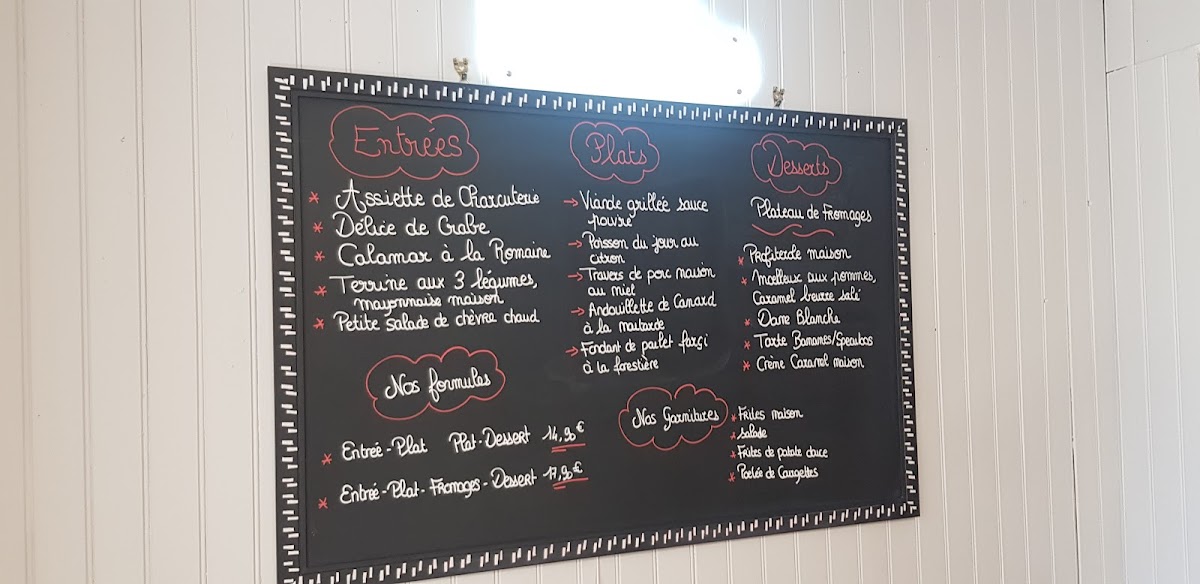 Entrées
* Assiette de Charcuterie
* Délice de Crabe
* Calamar à la Romaine
* Terrine aux 3 légumes,
mayonnaise maison
* Petite Salade de chèvre chaud
Nos formules
* Entrée-Plat Plat-Dessert 14,90€
* Entrée-Plat-Fromages-Dessert 17,90€
Plats
→ Viande grillée sauce
poivre
→ Poisson du jour au
citron
→ Travers de porc maison
au miel
→ Andouillette de Canard
à la moutarde
→ Fondant de poulet farçi
à la forestière
Desserts
Plateau de Fromages
* Profiterole maison
* Moelleux aux pommes,
Caramel beurre salé
* Dame Blanche
* Tarte Bananes/Speculos
* Crème Caramel maison
Nos Garnitures
* Frites maison
* Salade
* Frites de patate douce
* Poelée de Courgettes